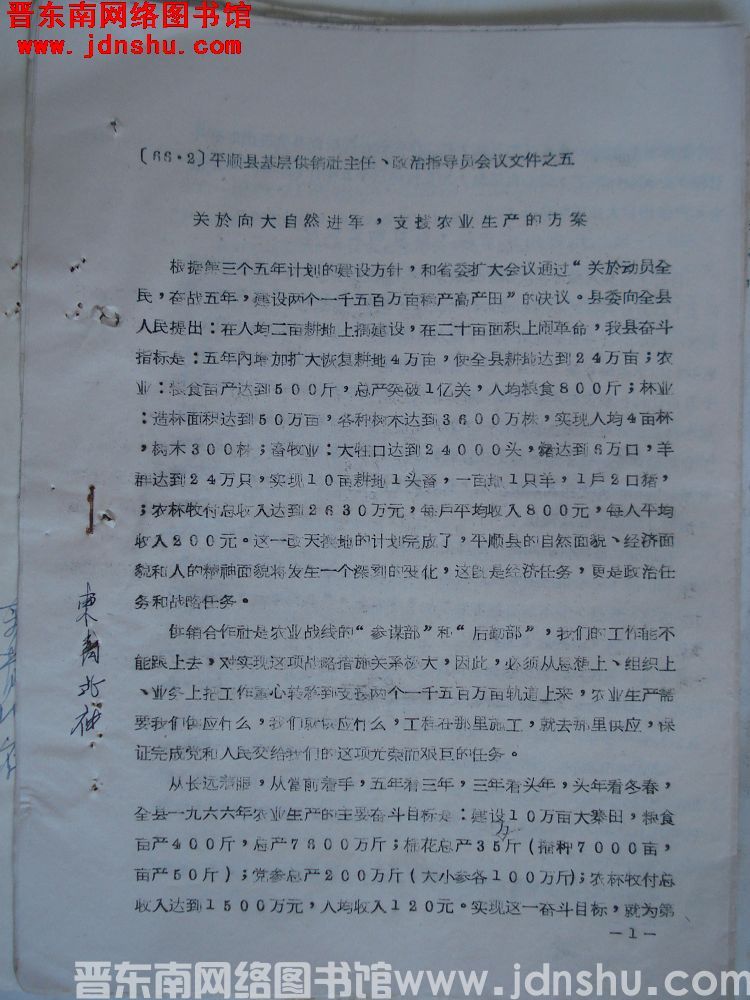 晋东南网络图书馆
www.jdnshu.com
〔66·2〕平顺县基层供销社主任、政治指导员会议文件之五
关於向大自然进军，支援农业生产的方案
根据第三个五年计划的建设方针，和省委扩大会议通过“关於动员全
民，奋战五年，建设两个一千五百万亩稳产高产田”的决议。县委向全县
人民提出：在人均二亩耕地上搞建设，在二十亩面积上闹革命，我县奋斗
指标是：五年內增加扩大恢复耕地4万亩，使全县耕地达到24万亩；农
业：粮食亩产达到500斤，总产突破1亿关，人均粮食800斤；林业
：造林面积达到50万亩，各种树木达到3600万株，实现人均4亩林
，树木300株；畜牧业：大牲口达到24000头，猪达到6万口，羊
群达到24万只，实现10亩耕地1头畜，一亩地1只羊，1戶2口猪，
；农林牧付总收入达到2630万元，每戶平均收入800元，每人平均
收入200元。这一改天换地的计划完成了，平顺县的自然面貌、经济面
貌和人的精神面貌将发生一个深刻的变化，这既是经济任务，更是政治任
务和战略任务。
供销合作社是农业战线的“参谋部”和“后勤部”，我们的工作能不
能跟上去，对实现这项战略措施关系极大，因此，必须从思想上、组织上
、业务上把工作重心转移到支援两个一千五百万亩轨道上来，农业生产需
要我们供应什么，我们就供应什么，工程在那里施工，就去那里供应，保
证完成党和人民交给我们的这项光荣而艰巨的任务。
从长远着眼，从当前着手，五年看三年，三年看头年，头年看冬春，
全县一九六六年农业生产的主要奋斗目标是：建设10万亩大寨田，粮食
亩产400斤，总产7800万斤；棉花总产35万斤（播种7000亩，
亩产50斤）；党参总产200万斤（大小参各100万斤）；农林牧付总
收入达到1500万元，人均收入120元。实现这一奋斗目标，就为第
—1—
晋东南网络图书馆www.jdnshu.com